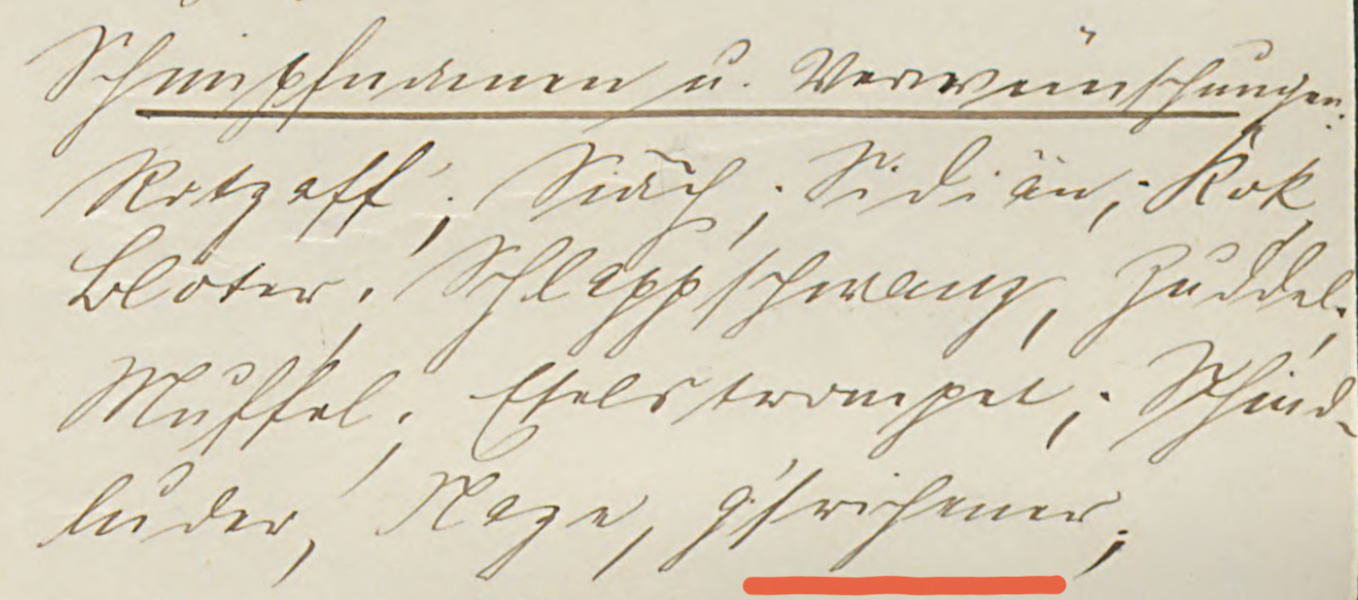 Schimpfnamen u. Verwünschungen.
Rotzaff; Siäch; Sidiän; Rok
Bloter; Schlappschwanz, Zuddel;
Muffel; Eselstrompet; Schind-
luder, Naze,